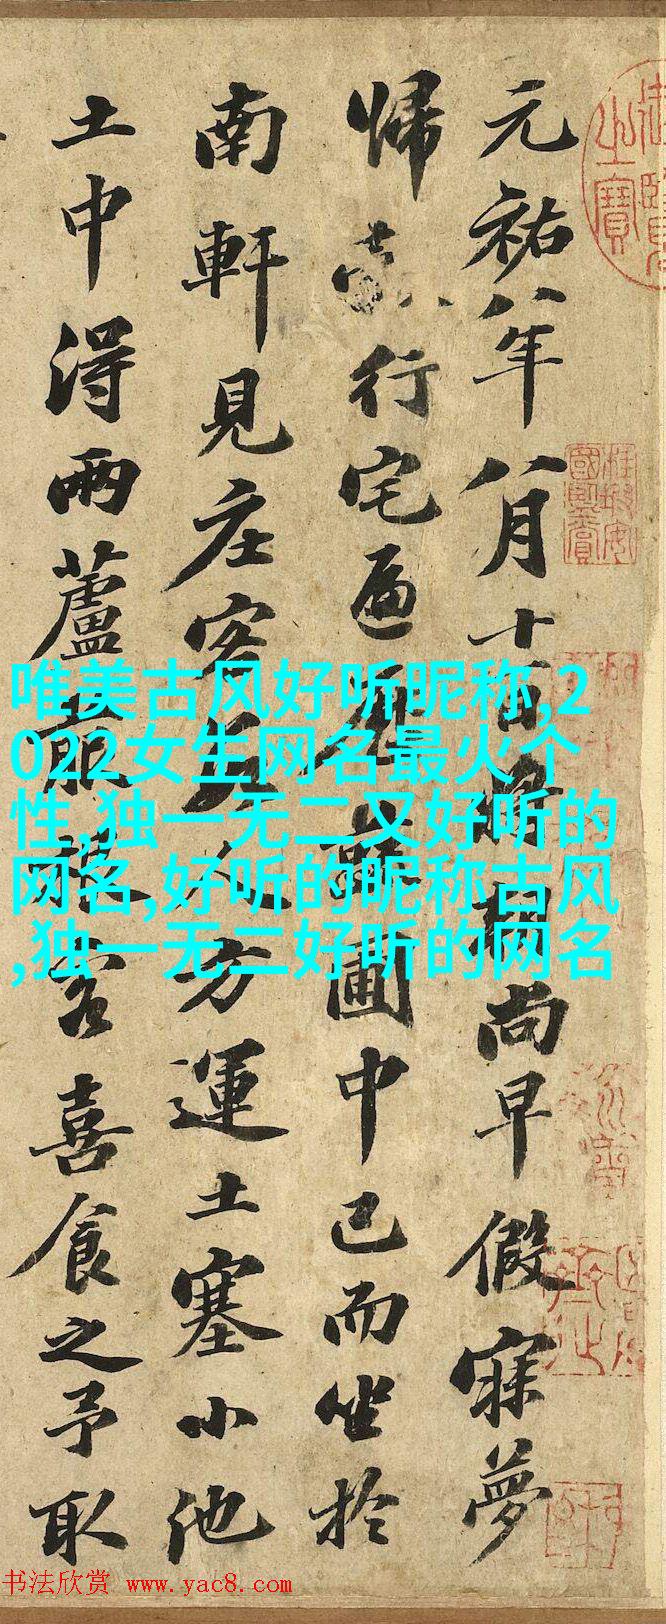 元祐八年八月十一日將朝尚早假寐夢
歸行宅遍歷蔬圃中已而坐於
南軒見庄客數人方運土塞小池
土中得兩蘆菔根客喜食之予取
唯美古风好听昵称,2
022女生网名最火个
性,独一无二又好听的
网名,好听的昵称古风
,独一无二好听的网名
御覽之寶
书法欣赏 www.yac8.com